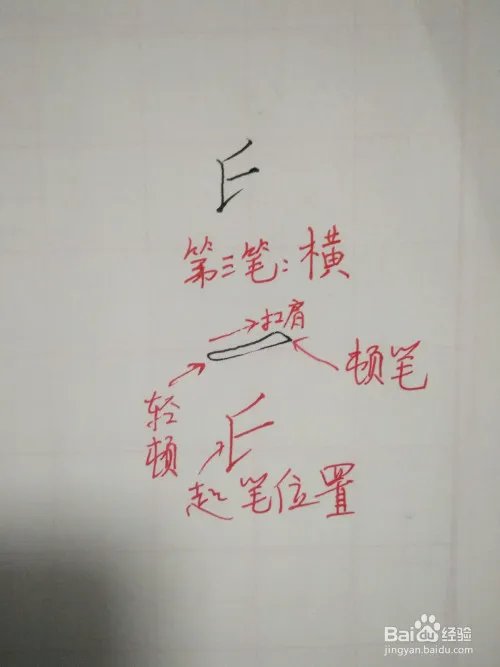 第三笔：横
扛肩
顿笔
轻顿
起笔位置
Baidu 经验
jingyan.baidu.com